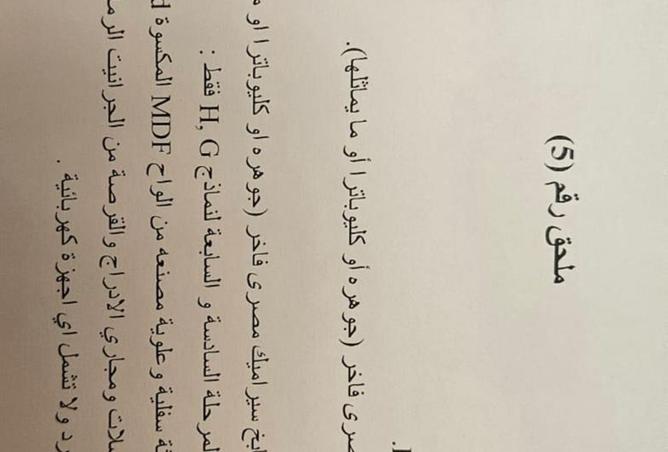 ملحق رقم (5)
صرى فاخر (جوهره أو كليوباترا أو ما يماثلها).
ابخ سيراميك مصرى فاخر (جوهره او كليوباترا او
لمرحلة السادسة و السابعة لنماذج H, G فقط :
سفلية و علوية مصنعه من الواح MDF المكسوة
ومجاري الادراج والقرصة من الجرانيت
ولا تشمل اي اجهزة كهربائية .